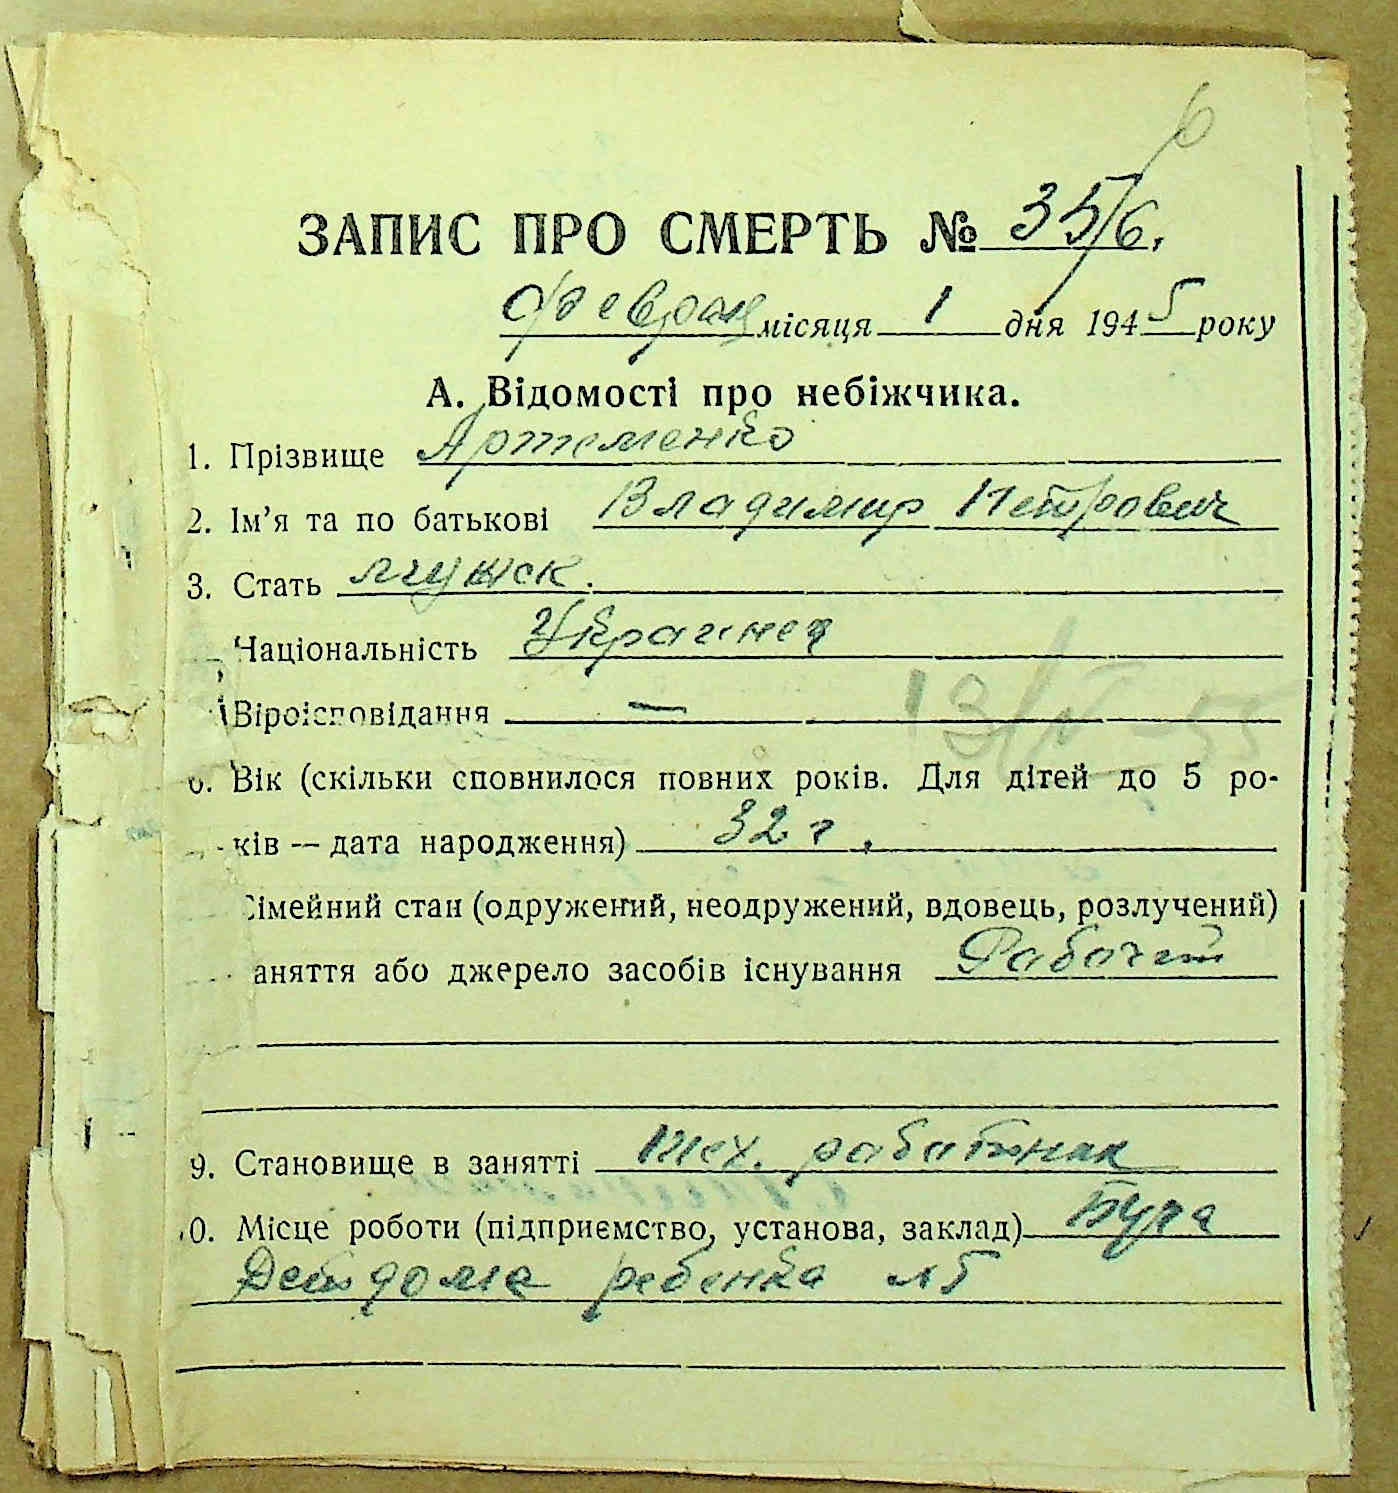 6
ЗАПИС ПРО СМЕРТЬ № 35/6.
Февраля місяця 1 дня 1945 року
А. Відомості про небіжчика.
1. Прізвище Артеменко
2. Ім’я та по батькові Владимир Петрович
3. Стать мужск.
Національність Украинец
Віроісповідання —
6. Вік (скільки сповнилося повних років. Для дітей до 5 ро-
ків — дата народження) 32 г.
Сімейний стан (одружений, неодружений, вдовець, розлучений)
аняття або джерело засобів існування Рабочий
9. Становище в занятті Тех. работник
0. Місце роботи (підприємство, установа, заклад) Буча
Дет дома ребенка №5